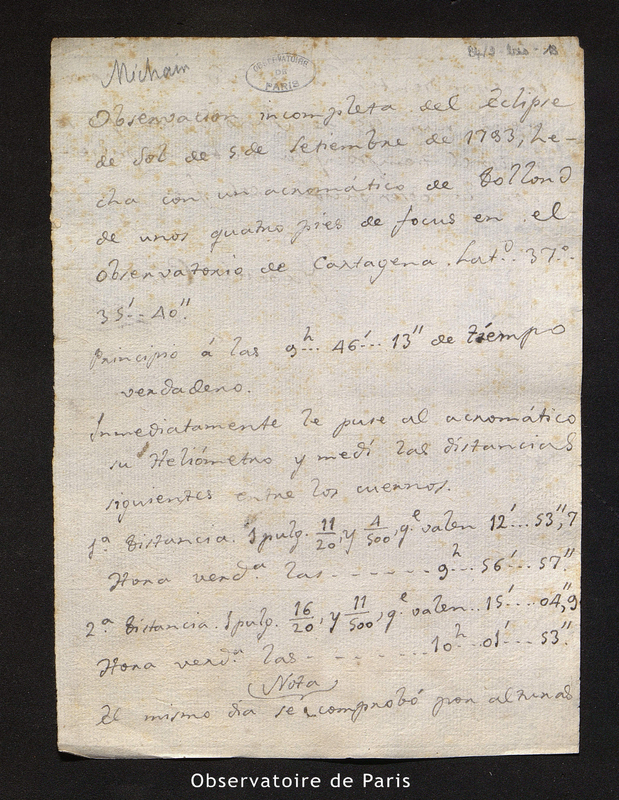 Michain
OBSERVATOIRE DE PARIS
Observacion incompleta del Eclipse
de Sol de 5 de Setiembre de 1793, he-
cha con un acromático de Dollond
de unos quatro pies de focus en el
Observatorio de Cartagena. Latd. 37°..
35'.. 40".
Principio á las 9h... 46'... 13" de tiempo
verdadero.
Inmediatamente le puse al acromático
su Heliómetro y medí las distancias
siguientes entre los cuernos.
1ª Distancia. 1 pulg. 11/20, y 4/500, qe valen 12'... 53",7
Hora verdª las - - - - - - 9h... 56'... 57"
2ª Distancia. 1 pulg. 16/20, y 11/500, qe valen.. 15'.... 04",9
Hora verdª las - - - - - - 10h... 01'... 53"
Nota
El mismo dia se comprobó por alturas
Observatoire de Paris